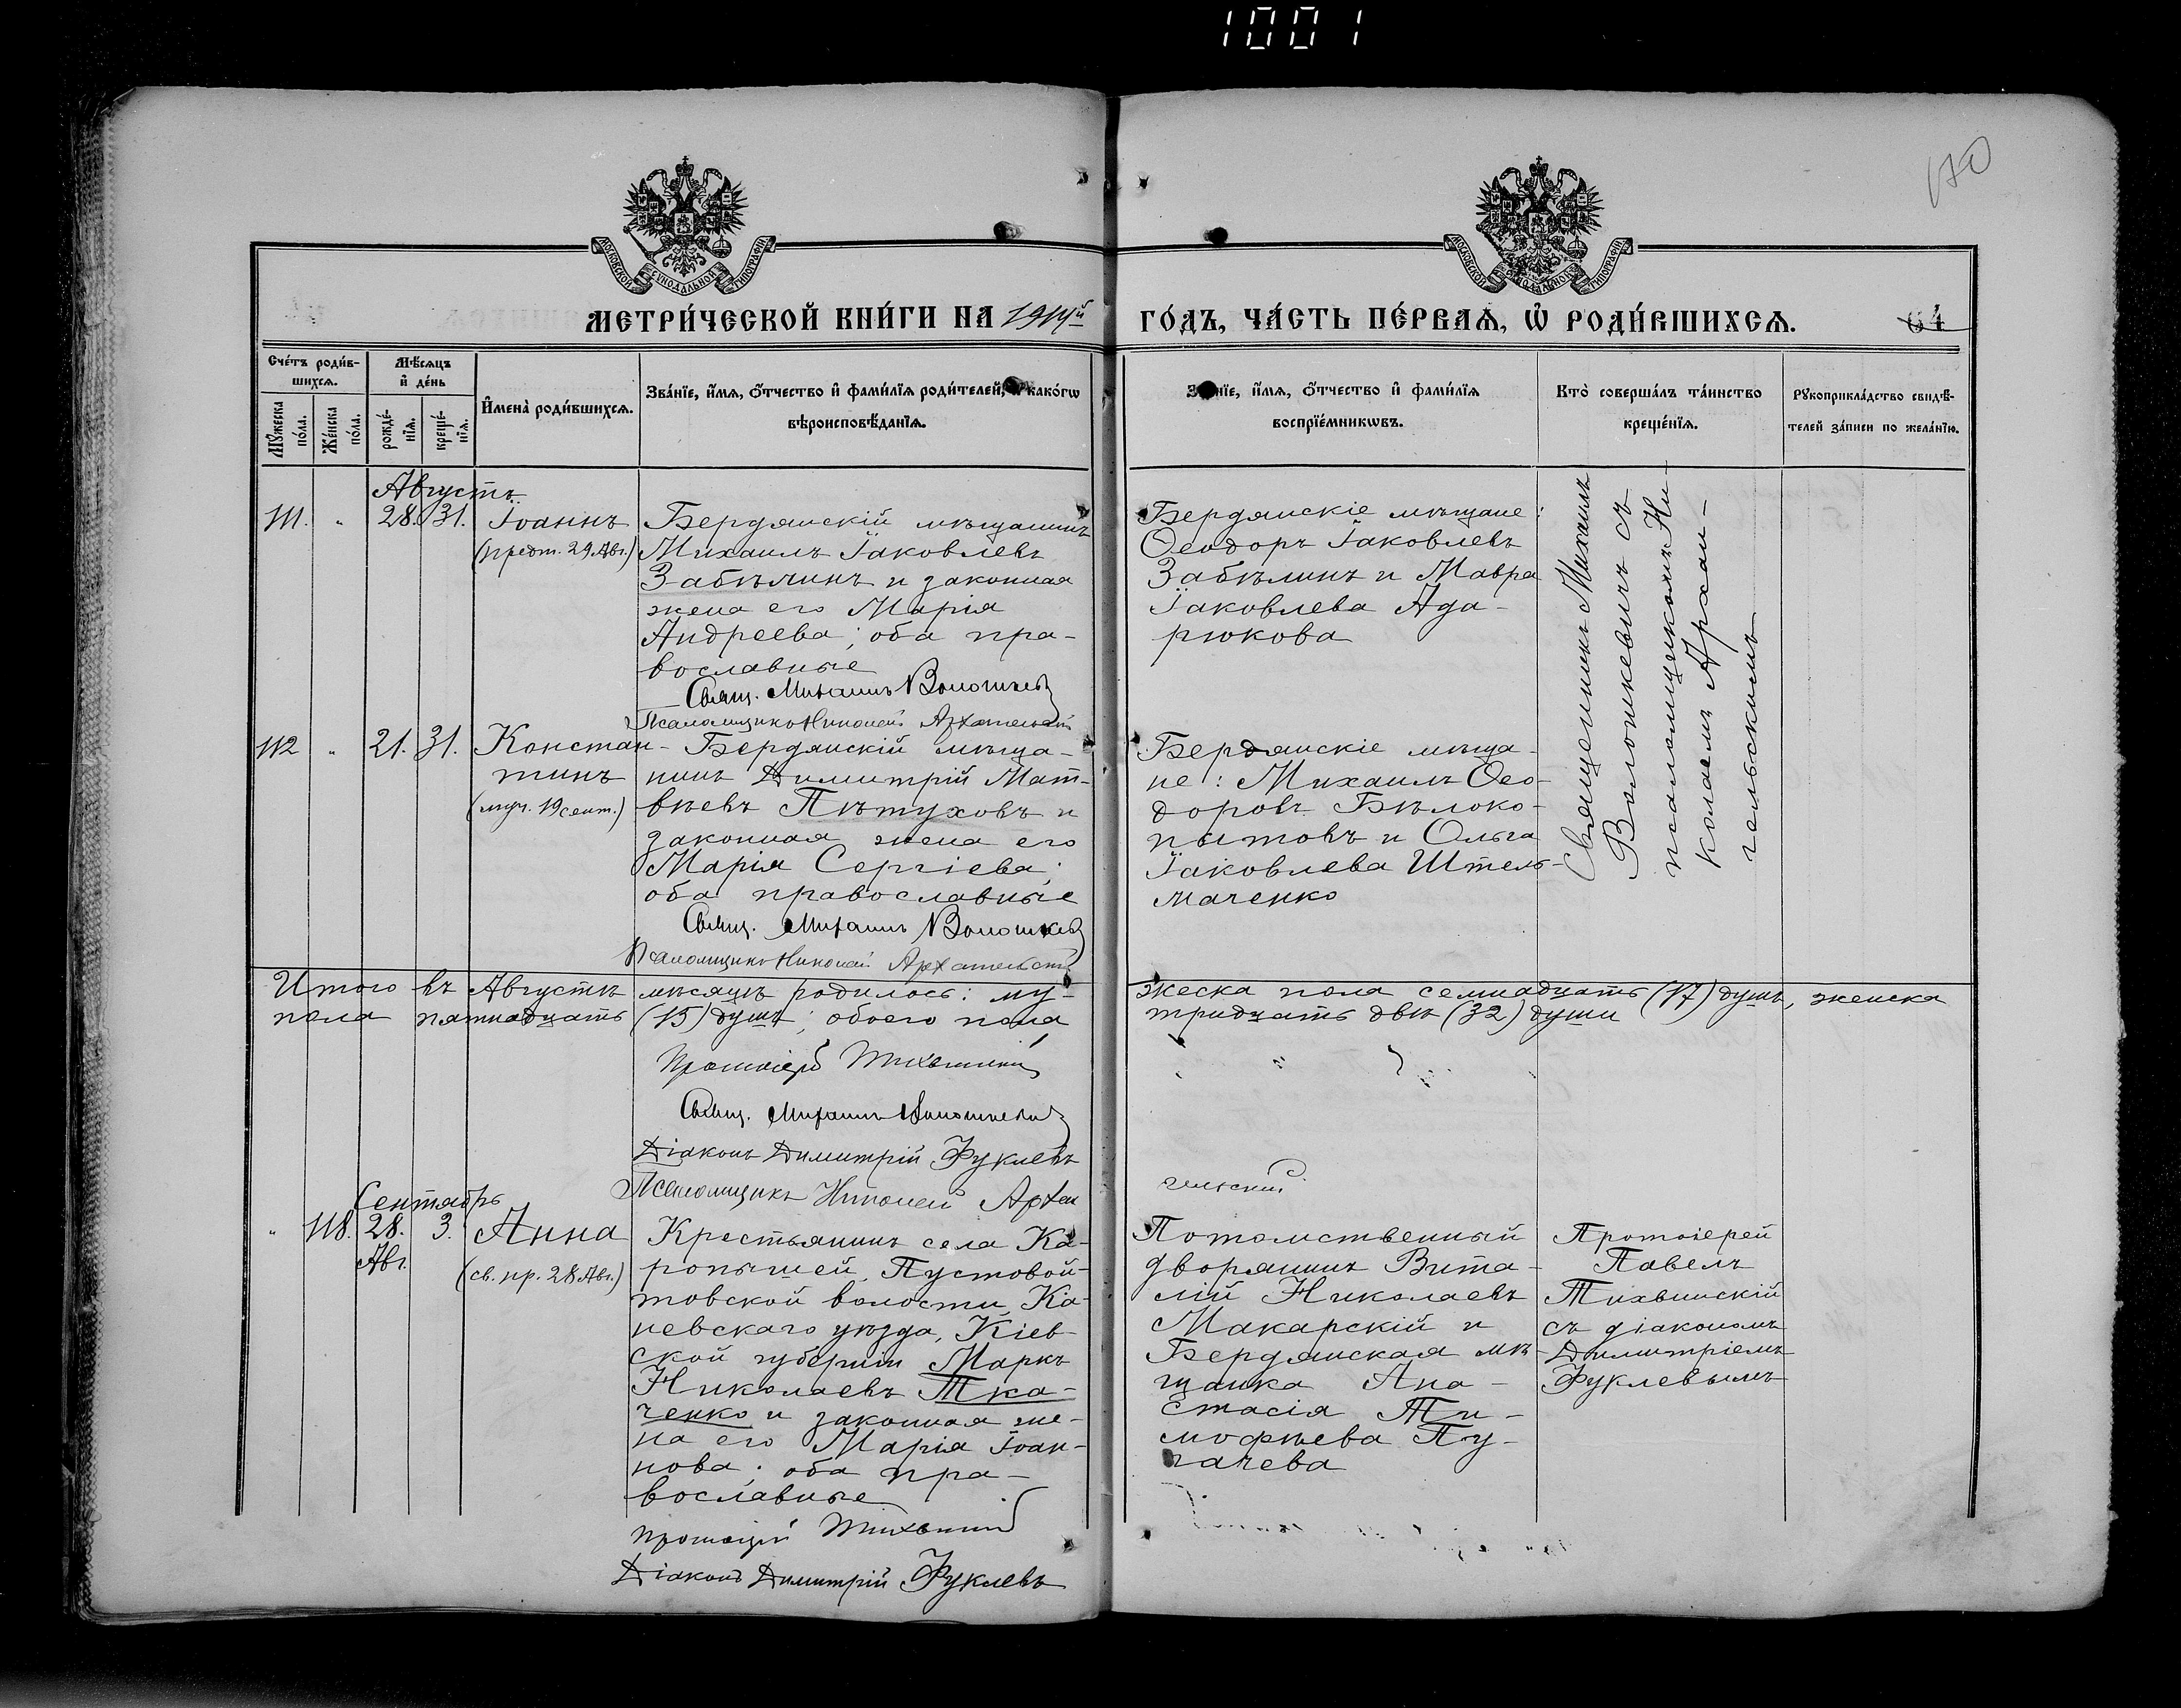 1001
170
МОСКОВСКОЙ СѴНОДАЛЬНОЙ ТИПОГРАФІИ
МОСКОВСКОЙ СѴНОДАЛЬНОЙ ТИПОГРАФІИ
МЕТРИ́ЧЕСКОЙ КНИ́ГИ НА 1914й ГО́ДЪ, ЧА́СТЬ ПЕ́РВАѦ, Ѡ҆ РОДИ́ВШИХСѦ.
64
Сче́тъ роди́в-
шихсѧ.
Мꙋ́жеска по́ла.
Же́нска по́ла.
Мѣ́сѧцъ
и҆ де́нь
рожде́-
нїѧ.
креще́-
нїѧ.
И҆мена̀ роди́вшихсѧ.
Зва́нїе, и҆́мѧ, ѻ҆́тчество и҆ фами́лїѧ роди́телей, и҆ како́гѡ
вѣроисповѣ́данїѧ.
Зва́нїе, и҆́мѧ, ѻ҆́тчество и҆ фами́лїѧ
воспрїе́мникѡвъ.
Кто̀ соверша́лъ та́инство
креще́нїѧ.
Рꙋкоприкла́дство свидѣ́-
телей за́писи по жела́нїю.
Августъ
111. " 28. 31. Іоаннъ
(предт. 29 Авг.)
Бердянскій мѣщанинъ
Михаилъ Іаковлевъ
Забѣлинъ и законная
жена его Марія
Андреева; оба пра-
вославные
Свящ. Михаилъ Волошкевич
Псаломщикъ Николай Архангельскій
Бердянскіе мѣщане:
Ѳеодоръ Іаковлевъ
Забѣлинъ и Мавра
Іаковлева Ада-
рюкова
Священникъ Михаилъ
Волошкевичъ съ
псаломщикомъ Ни-
колаемъ Архан-
гельскимъ
112 " 21. 31. Констан-
тинъ
(муч. 19 сент.)
Бердянскій мѣща-
нинъ Димитрій Мат-
вѣевъ Пѣтуховъ и
законная жена его
Марія Сергіева;
оба православные
Свящ. Михаилъ Волошкевич
Псаломщикъ Николай Архангельскій
Бердянскіе мѣща-
не: Михаилъ Ѳео-
доровъ Бѣлоко-
пытовъ и Ольга
Іаковлева Штель-
маченко
Итого въ Августѣ мѣсяцѣ родилось: му-
жеска пола семнадцать (17) душъ, женска
пола пятнадцать (15) душъ; обоего пола
тридцать двѣ (32) души
Протоіерей Тихвинскій
Свящ. Михаилъ Волошкевич
Діаконъ Димитрій Фуклевъ
Псаломщикъ Николай Архан
гельскій
Сентябрь
" 118. 28. 3. Анна
Авг.
(св. пр. 28 Авг.)
Крестьянинъ села Ка-
ропышей, Пустовой-
товской волости, Ка-
невскаго уѣзда, Кіев-
ской губерніи Маркъ
Николаевъ Тка-
ченко и законная же-
на его Марія Іоан-
нова; оба пра-
вославные
Протоіерей Тихвинскій
Діаконъ Димитрій Фуклевъ
Потомственный
дворянинъ Вита-
лій Николаевъ
Макарскій и
Бердянская мѣ-
щанка Ана-
стасія Ти-
моѳеева Пу-
гачева
Протоіерей
Павелъ
Тихвинскій
съ діакономъ
Димитріемъ
Фуклевымъ